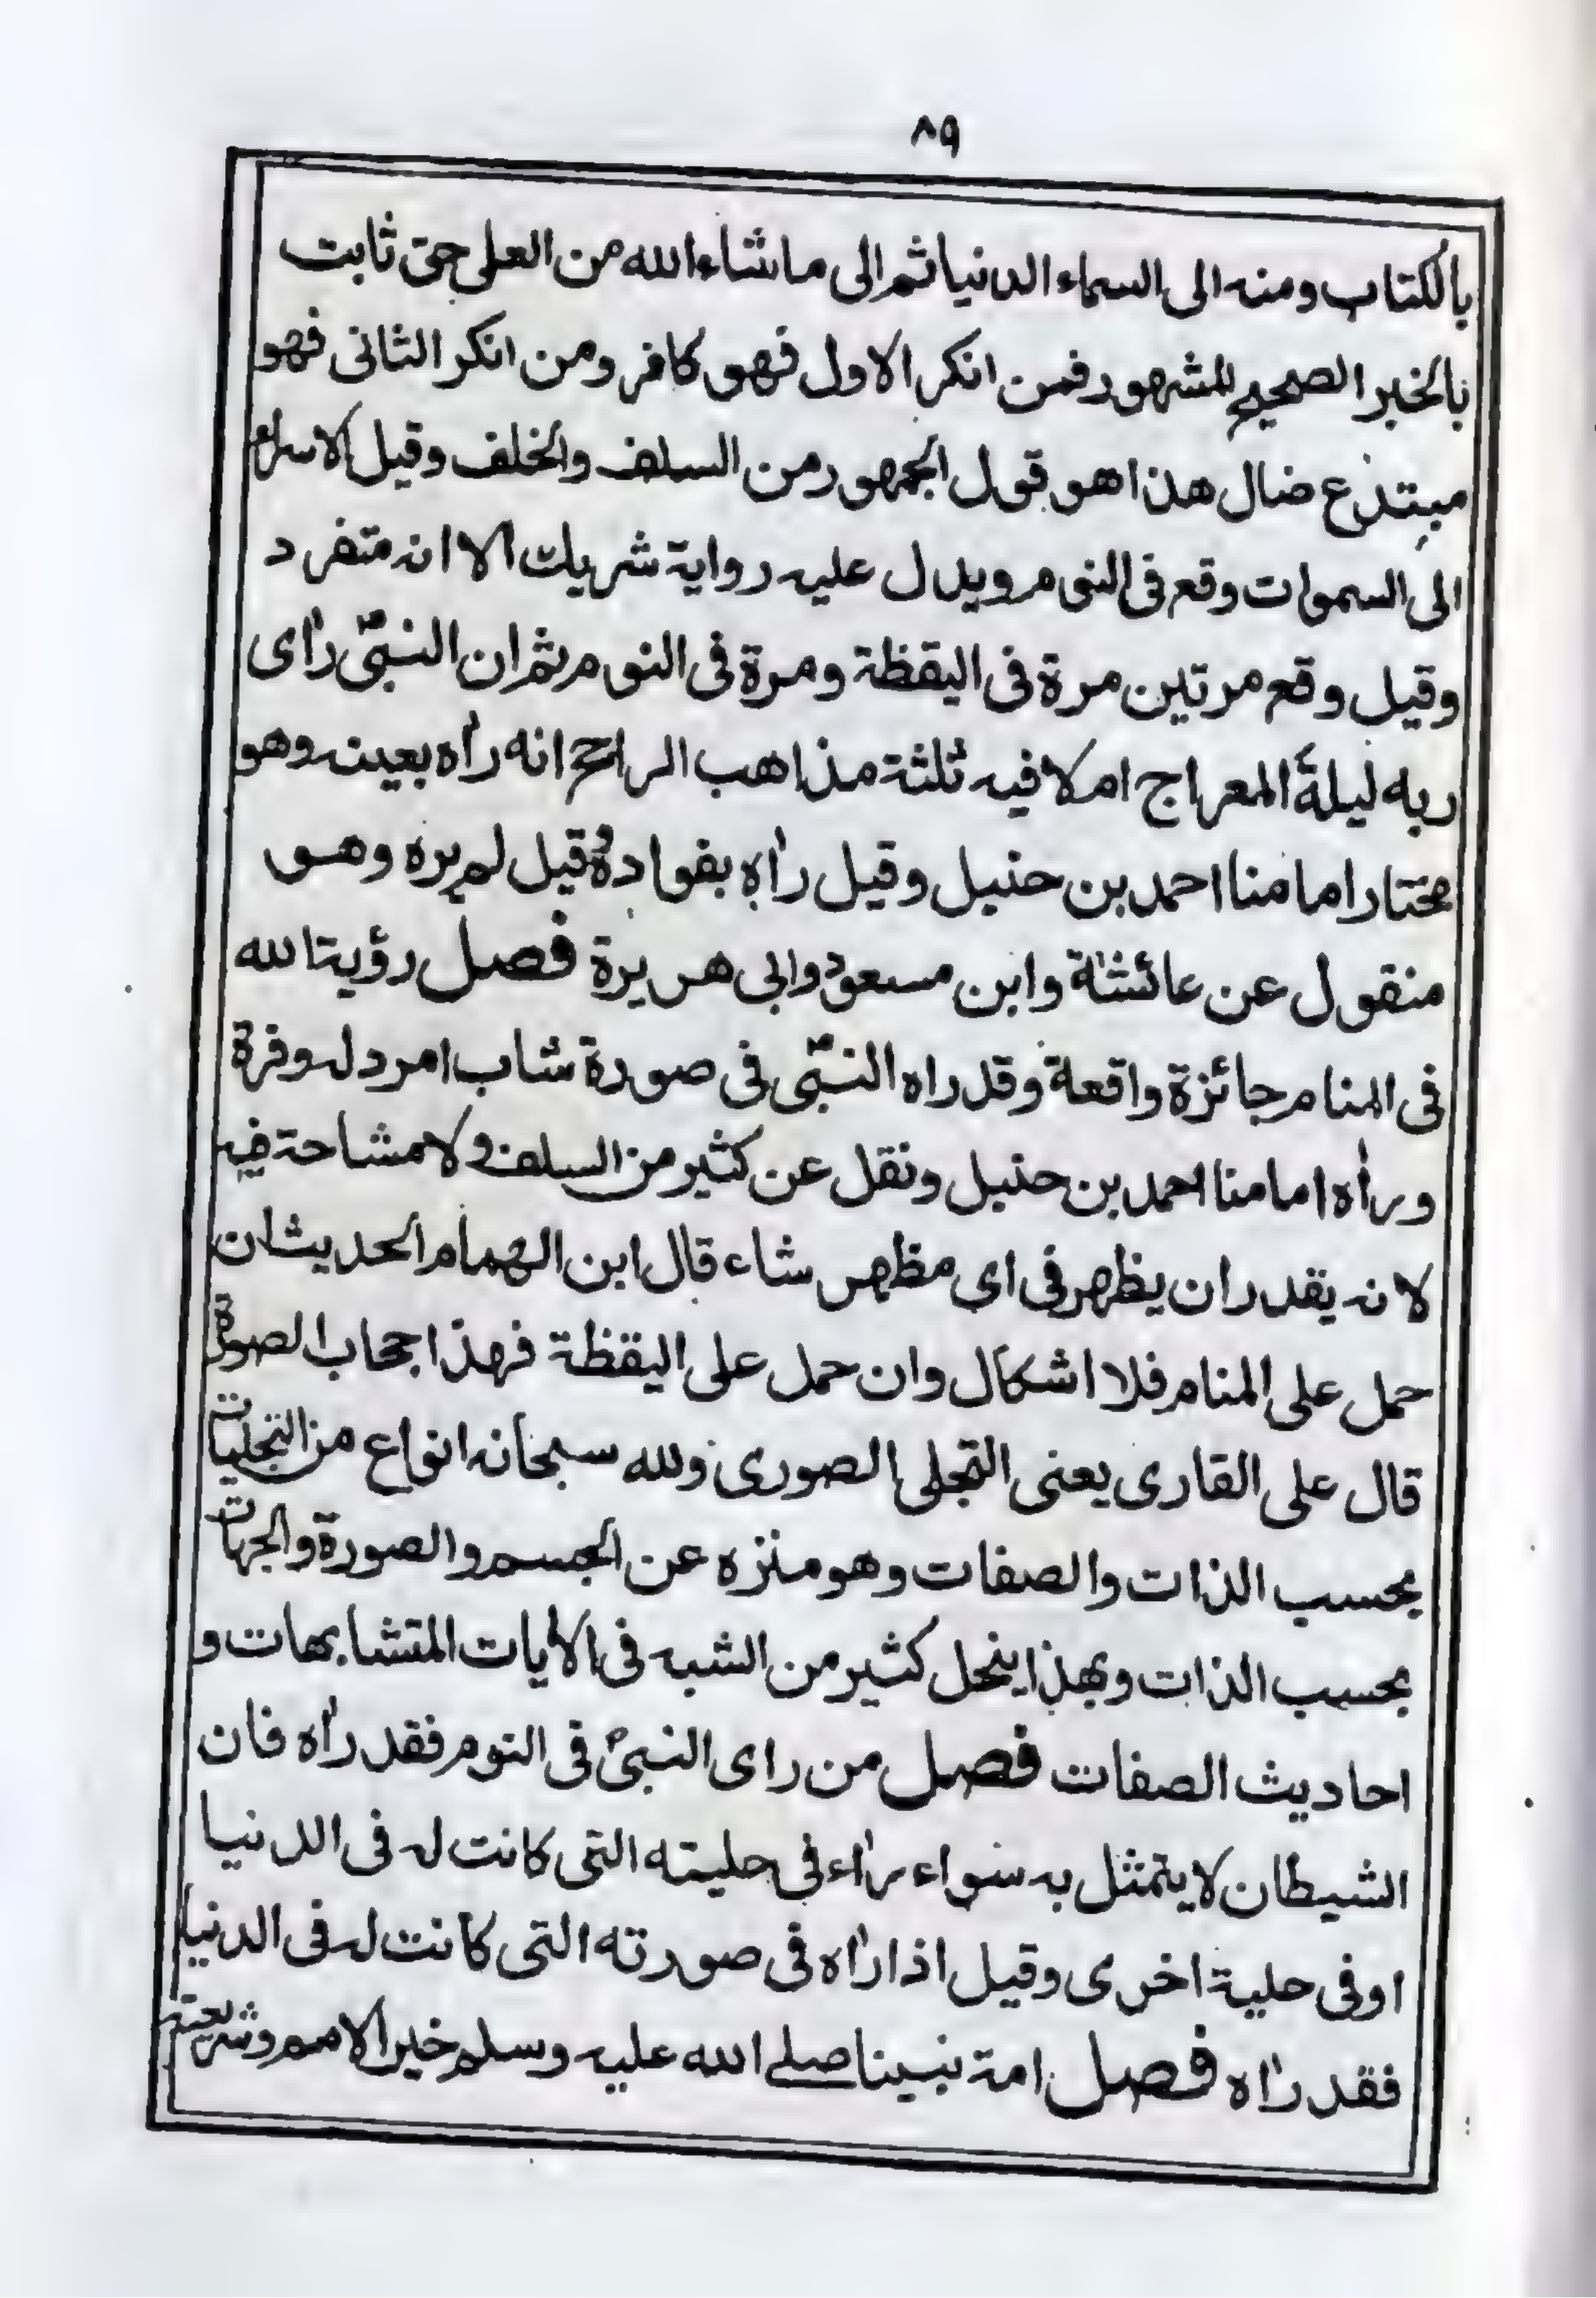 ٨٩
بالكتاب ومنه الى السماء الدنيا ثم الى ما شاء الله من العلى حق ثابت
بالخبر الصحيح المشهور فمن انكر الاول فهو كافر ومن انكر الثانى فهو
مبتدع ضال هذا هو قول الجمهور من السلف والخلف وقيل الاسراء
الى السموات وقع فى النوم ويدل عليه رواية شريك الا انه متفرد
وقيل وقع مرتين مرة فى اليقظة ومرة فى النوم ثم ان النبىؐ راٰى
ربه ليلة المعراج ام لا فيه ثلثة مذاهب الراجح انه راٰه بعينه وهو
مختار امامنا احمد بن حنبل وقيل راٰه بفواده وقيل لم يره وهو
منقول عن عائشة وابن مسعود وابى هريرة فصل رؤية الله
فى المنام جائزة واقعة وقد راه النبىؐ فى صورة شاب امرد له وفرة
وراٰه امامنا احمد بن حنبل ونقل عن كثير من السلف ولا مشاحة فيه
لانه يقدر ان يظهر فى اى مظهر شاء قال ابن الهمام الحديث ان
حمل على المنام فلا اشكال وان حمل على اليقظة فهذا حجاب الصورة
قال على القارى يعنى التجلى الصورى ولله سبحانه انواع من التجليات
بحسب الذات والصفات وهو منزه عن الجسم والصورة والجهات
بحسب الذات وبهذا ينحل كثير من الشبه فى الاٰيات المتشابهات و
احاديث الصفات فصل من راى النبىؐ فى النوم فقد راٰه فان
الشيطان لا يتمثل به سواء راٰه فى حليته التى كانت له فى الدنيا
او فى حلية اخرى وقيل اذا راٰه فى صورته التى كانت له فى الدنيا
فقد راٰه فصل امة نبينا صلے الله عليه وسلم خير الامم وشريعته